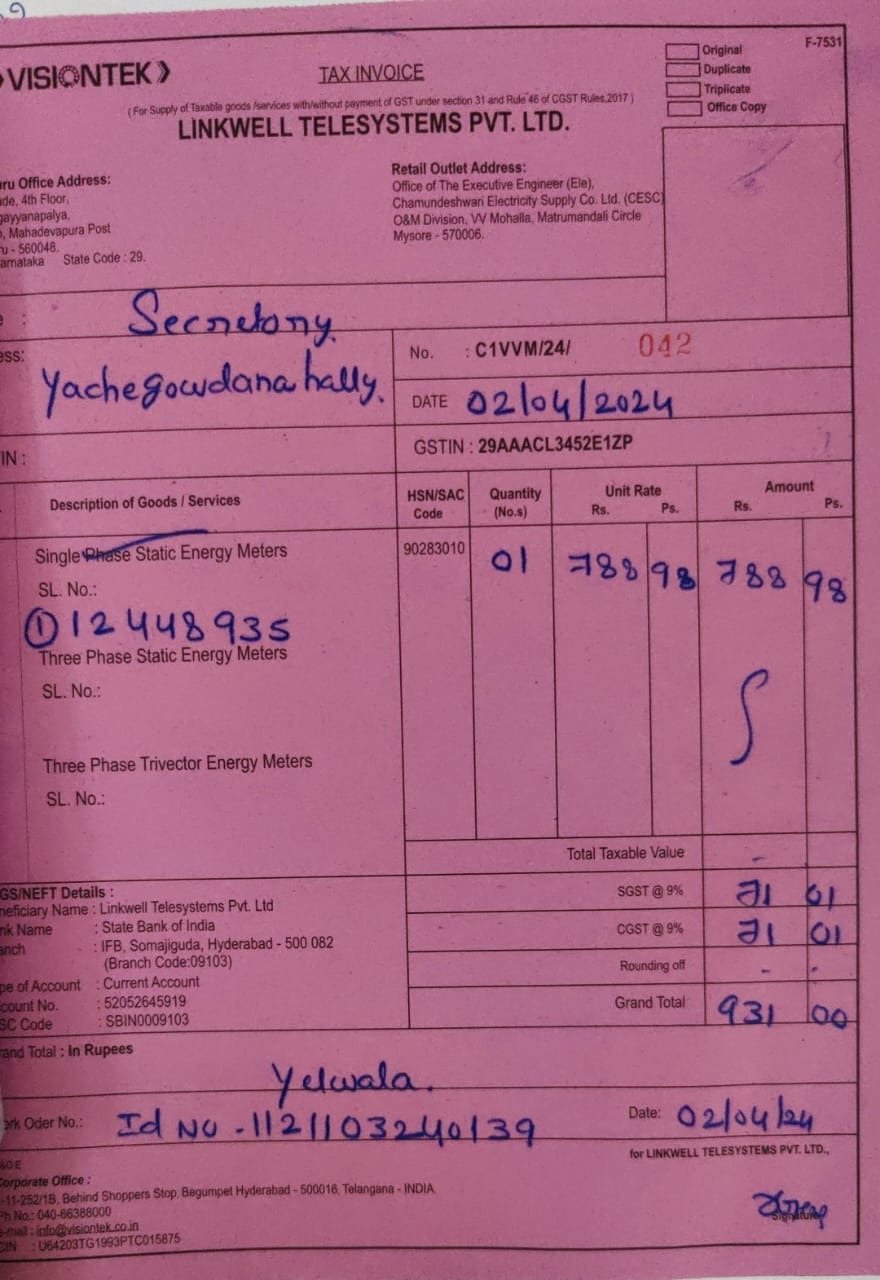 VISIONTEK
TAX INVOICE
Original
Duplicate
Triplicate
Office Copy
F-7531
( For Supply of Taxable goods /services with/without payment of GST under section 31 and Rule 46 of CGST Rules,2017 )
LINKWELL TELESYSTEMS PVT. LTD.
ru Office Address:
de, 4th Floor,
gayyanapalya,
, Mahadevapura Post
u - 560048.
arnataka State Code : 29.
Retail Outlet Address:
Office of The Executive Engineer (Ele),
Chamundeshwari Electricity Supply Co. Ltd. (CESC)
O&M Division, VV Mohalla, Matrumandali Circle
Mysore - 570006.
e : Secretary.
ess: Yachegowdanahally.
No. : C1VVM/24/ 042
DATE 02/04/2024
IN :
GSTIN : 29AAACL3452E1ZP
Description of Goods / Services HSN/SAC Code Quantity (No.s) Unit Rate Rs. Ps. Amount Rs. Ps.
Single Phase Static Energy Meters 90283010 01 788 98 788 98
SL. No.:
① 12448935
Three Phase Static Energy Meters
SL. No.:
Three Phase Trivector Energy Meters
SL. No.:
Total Taxable Value -
SGST @ 9% 71 01
CGST @ 9% 71 01
Rounding off - -
Grand Total 931 00
GS/NEFT Details :
neficiary Name : Linkwell Telesystems Pvt. Ltd
nk Name : State Bank of India
anch : IFB, Somajiguda, Hyderabad - 500 082
(Branch Code:09103)
pe of Account : Current Account
count No. : 52052645919
SC Code : SBIN0009103
and Total : In Rupees
Yelwala.
ork Oder No.: Id No - 1121103240139
Date: 02/04/24
for LINKWELL TELESYSTEMS PVT. LTD.,
&O.E
Corporate Office :
-11-252/1B, Behind Shoppers Stop, Begumpet Hyderabad - 500016, Telangana - INDIA.
Ph No.: 040-66388000
e-mail : info@visiontek.co.in
CIN : U64203TG1993PTC015875
Signature